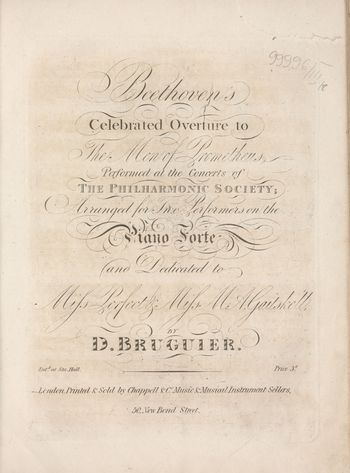 99996/III/
Beethoven's
Celebrated Overture to
The Men of Prometheus,
Performed at the Concerts of
THE PHILHARMONIC SOCIETY;
Arranged for Two Performers on the
Piano Forte
and Dedicated to
Miss Perfect & Miss M.A. Gaitskell,
BY
D. BRUGUIER.
Ent.d at Sta. Hall.
Price 3s
London, Printed & Sold by Chappell & Co. Music & Musical Instrument Sellers,
50, New Bond Street.